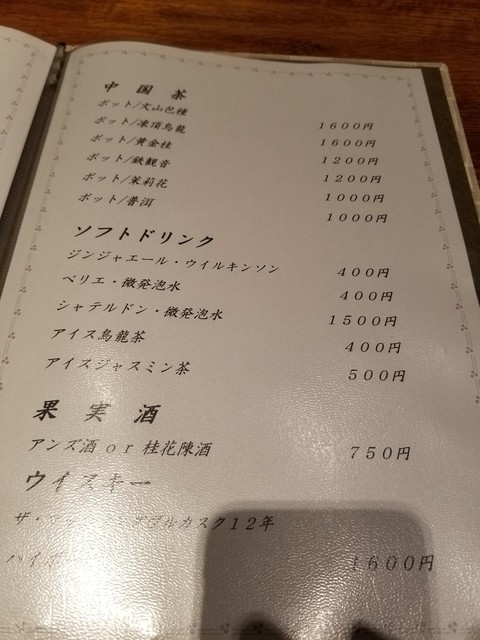 中国茶
ポット/文山包種 1600円
ポット/凍頂烏龍 1600円
ポット/黄金桂 1200円
ポット/鉄観音 1200円
ポット/茉莉花 1000円
ポット/普洱 1000円
ソフトドリンク
ジンジャエール・ウイルキンソン 400円
ペリエ・微発泡水 400円
シャテルドン・微発泡水 1500円
アイス烏龍茶 400円
アイスジャスミン茶 500円
果実酒
アンズ酒 or 桂花陳酒 750円
ウイスキー
ザ・ ルカスク12年
ハイボ 1600円